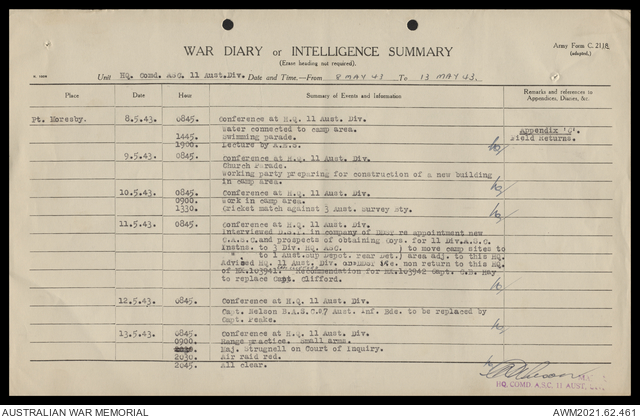 WAR DIARY or INTELLIGENCE SUMMARY
(Erase heading not required).
Army Form C. 2118
(adapted.)
Unit HQ. Comd. ASC. 11 Aust.Div. Date and Time.—From 8 MAY 43 To 13 MAY 43.
Place Date Hour Summary of Events and Information Remarks and references to Appendices, Diaries, &c.
Pt. Moresby. 8.5.43. 0845. Conference at H.Q. 11 Aust. Div.
Water connected to camp area. Appendix 'G'.
1445. Swimming parade. Field Returns.
1900. Lecture by
9.5.43. 0845. Conference at H.Q. 11 Aust. Div.
Church Parade.
Working party preparing for construction of a new building
in camp area.
10.5.43. 0845. Conference at H.Q. 11 Aust. Div.
0900. Work in camp area.
1330. Cricket match against 3 Aust. Survey Bty.
11.5.43. 0845. Conference at H.Q. 11 Aust. Div.
Interviewed in company of re appointment new
C.A.S.C. and prospects of obtaining Coys. for 11 Div.A.S.C.
Instns. to 3 Div. HQ ASC ) to move camp sites to
" to 1 Aust.Sup Depot. rear Det.) area adj. to this HQ
Advised HQ. 11 Aust. Div. non return to this HQ
of Recommendation for Capt. G.B. Hay
to replace Capt. Clifford.
12.5.43. 0845. Conference at H.Q 11 Aust. Div.
Capt. Nelson B.A.S.C. Aust. Inf. Bde. to be replaced by
Capt. Peake.
13.5.43. 0845. Conference at H.Q. 11 Aust. Div.
0900. Range practice. small arms.
Maj. Strugnell on Court of Inquiry.
2030. Air raid red.
2045. All clear.
HQ. COMD A.S.C. 11 AUST.
AUSTRALIAN WAR MEMORIAL
AWM2021.62.461